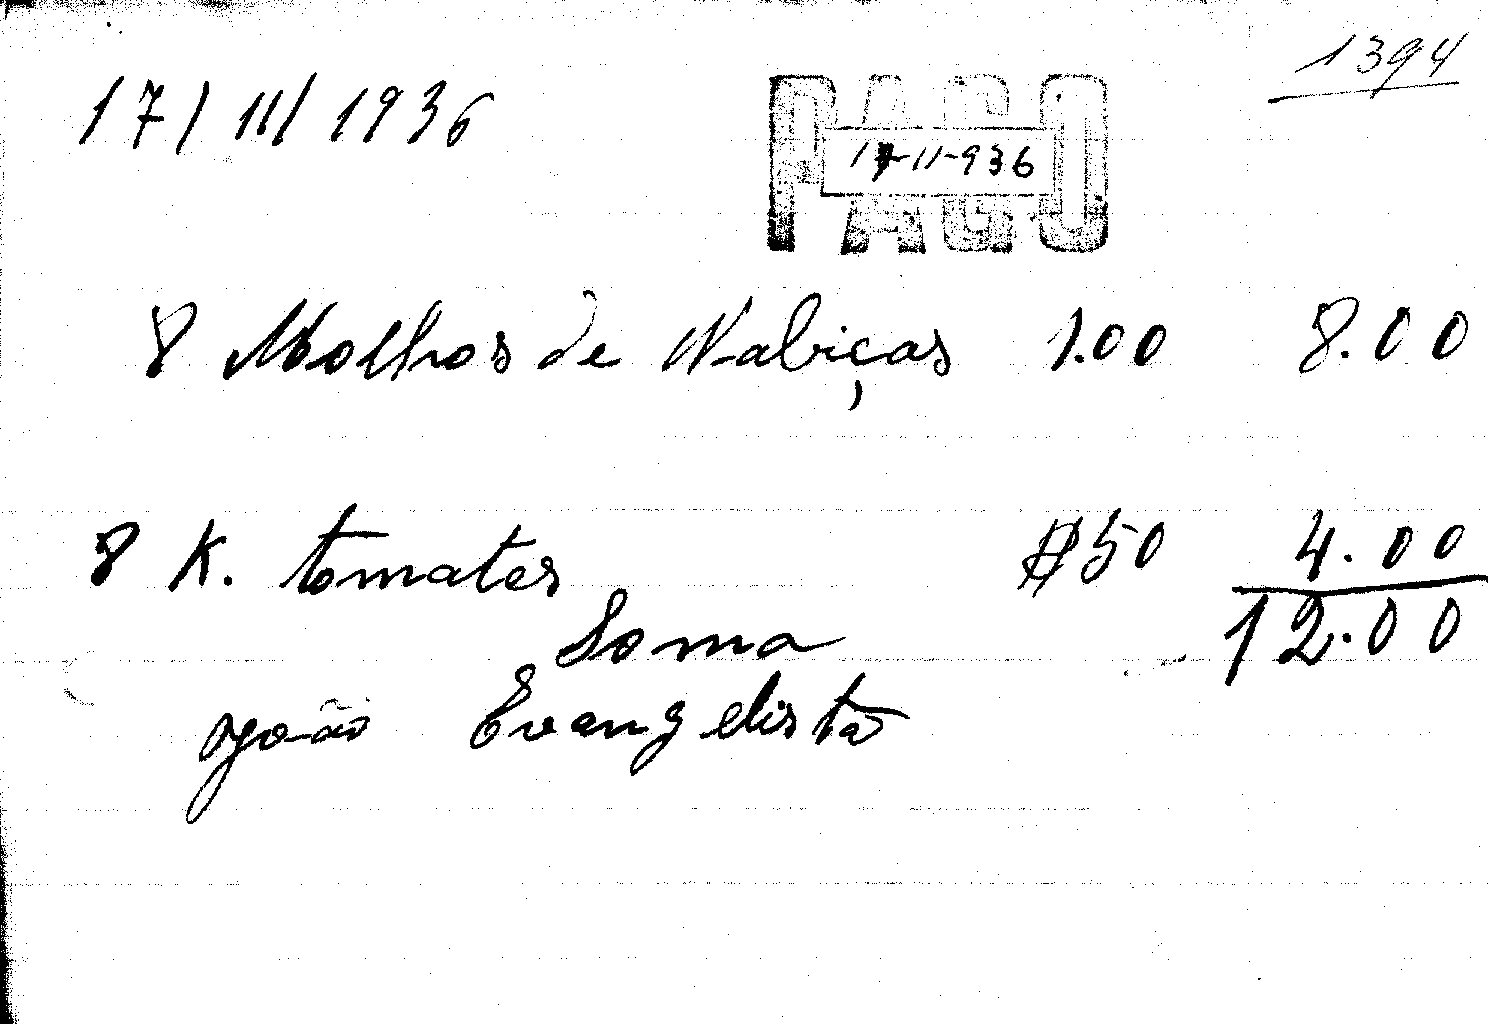 1394
17/11/1936
PAGO
17-11-936
8 Molhos de Nabiças 1.00 8.00
8 K. tomates $50 4.00
Soma 12.00
João Evangelista